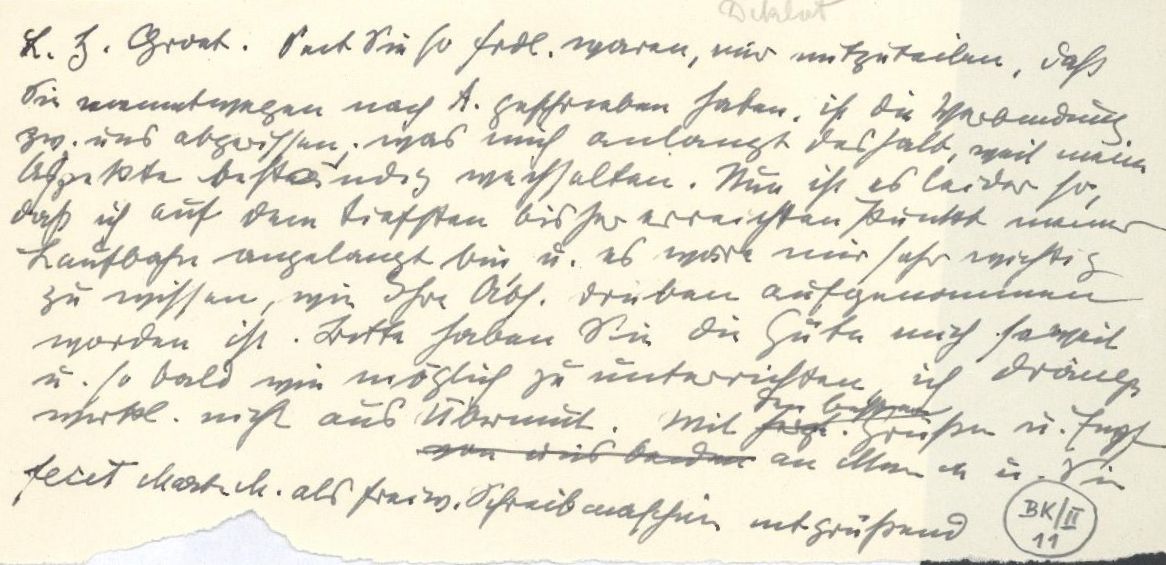 Diktat
L. H. Groet. Seit Sie so frdl. waren, mir mitzuteilen, daß
Sie meinetwegen nach A. geschrieben haben, ist die Verbindung
zw. uns abgerissen, was mich anlangt deshalb, weil meine
Aspekte beständig wechselten. Nun ist es leider so,
daß ich auf dem tiefsten bisher erreichten Punkt meiner
Laufbahn angelangt bin u. es wäre mir sehr wichtig
zu wissen, wie Ihre Abs. drüben aufgenommen
worden ist. Bitte haben Sie die Güte mich soweit
u. so bald wie möglich zu unterrichten, ich dränge
wirkl. nicht aus Übermut. Mit
den besten
Grüßen u. Empf
von uns beiden an M u. Sie
fecit M. als freiw. Schreibmaschine mitgrüßend
BK/II
11